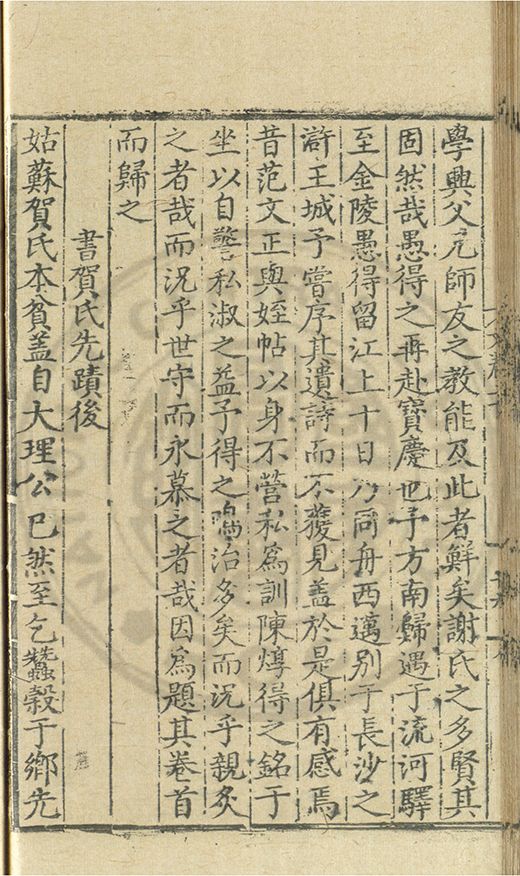 學與父兄師友之教能及此者鮮矣謝氏之多賢其
固然哉愚得之再赴寶慶也予方南歸遇于流河驛
至金陵愚得留江上十日乃同舟西邁別于長沙之
滸王城予嘗序其遺詩而不獲見蓋於是俱有感焉
昔范文正與姪帖以身不營私爲訓陳焞得之銘于
坐以自警私淑之益予得之治多矣而況乎親炙
之者哉而況乎世守而永慕之者哉因爲題其卷首
而歸之
書賀氏先蹟後
姑蘇賀氏本貧蓋自大理公已然至乞蠶穀于鄉先